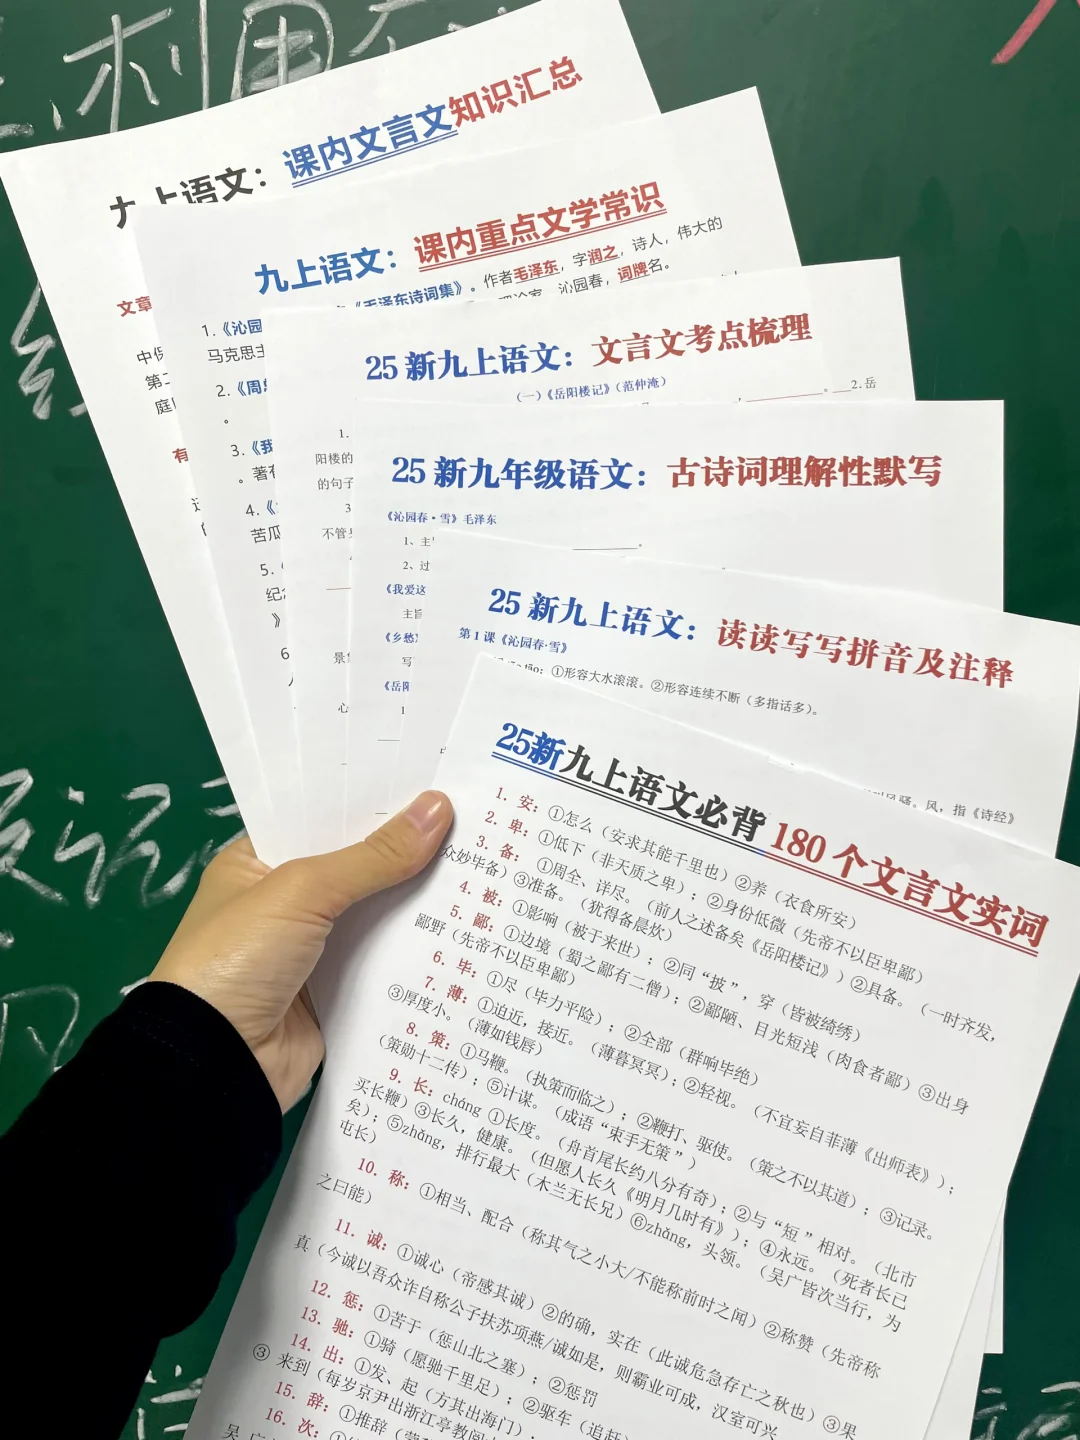 利用
九上语文：课内文言文知识汇总
文章
中
第二
庭
有
九上语文：课内重点文学常识
1.《沁园 《毛泽东诗词集》。作者毛泽东，字润之，诗人，伟大的
马克思主 沁园春，词牌名。
2.《周
。
3.《我
。著有
4.《
苦瓜
5.
纪念
》
6
25 新九上语文：文言文考点梳理
（一）《岳阳楼记》（范仲淹）
1. 。 2.岳
阳楼的
的句子
3
不管
景
心
25 新九年级语文：古诗词理解性默写
《沁园春·雪》毛泽东
1、主 。
2、过
《我爱这
主旨
《乡愁》
写
《岳阳
1
25 新九上语文：读读写写拼音及注释
第 1 课《沁园春·雪》
tāo：①形容大水滚滚。②形容连续不断（多指话多）。
风骚。风，指《诗经》
25新九上语文必背 180 个文言文实词
1. 安：①怎么（安求其能千里也）②养（衣食所安）
2. 卑：①低下（非天质之卑）；②身份低微（先帝不以臣卑鄙）
3. 备：①周全、详尽。（前人之述备矣《岳阳楼记》）②具备。（一时齐发，
众妙毕备）③准备。（犹得备晨炊）
4. 被：①影响（被于来世）；②同“披”，穿（皆被绮绣）
5. 鄙：①边境（蜀之鄙有二僧）；②鄙陋、目光短浅（肉食者鄙）③出身
鄙野（先帝不以臣卑鄙）
6. 毕：①尽（毕力平险）；②全部（群响毕绝）
7. 薄：①迫近，接近。（薄暮冥冥）；②轻视。（不宜妄自菲薄《出师表》）；
③厚度小。（薄如钱唇）
8. 策：①马鞭。（执策而临之）；②鞭打、驱使。（策之不以其道）；③记录。
（策勋十二传）；⑤计谋。（成语“束手无策”）
9. 长：cháng ①长度。（舟首尾长约八分有奇）；②与“短”相对。（北市
买长鞭）③长久，健康。（但愿人长久《明月几时有》）；④永远。（死者长已
矣）；⑤zhǎng，排行最大（木兰无长兄）⑥zhǎng，头领。（吴广皆次当行，为
屯长）
10. 称：①相当、配合（称其气之小大/不能称前时之闻）②称赞（先帝称
之曰能）
11. 诚：①诚心（帝感其诚）②的确，实在（此诚危急存亡之秋也）③果
真（今诚以吾众诈自称公子扶苏项燕/诚如是，则霸业可成，汉室可兴
12. 惩：①苦于（惩山北之塞）；②惩罚
13. 驰：①骑（愿驰千里足）；②驱车（追赶
14. 出：①发、起（方其出海门）；
③ 来到（每岁京尹出浙江亭教阅
15. 辞：①推辞
16. 次：